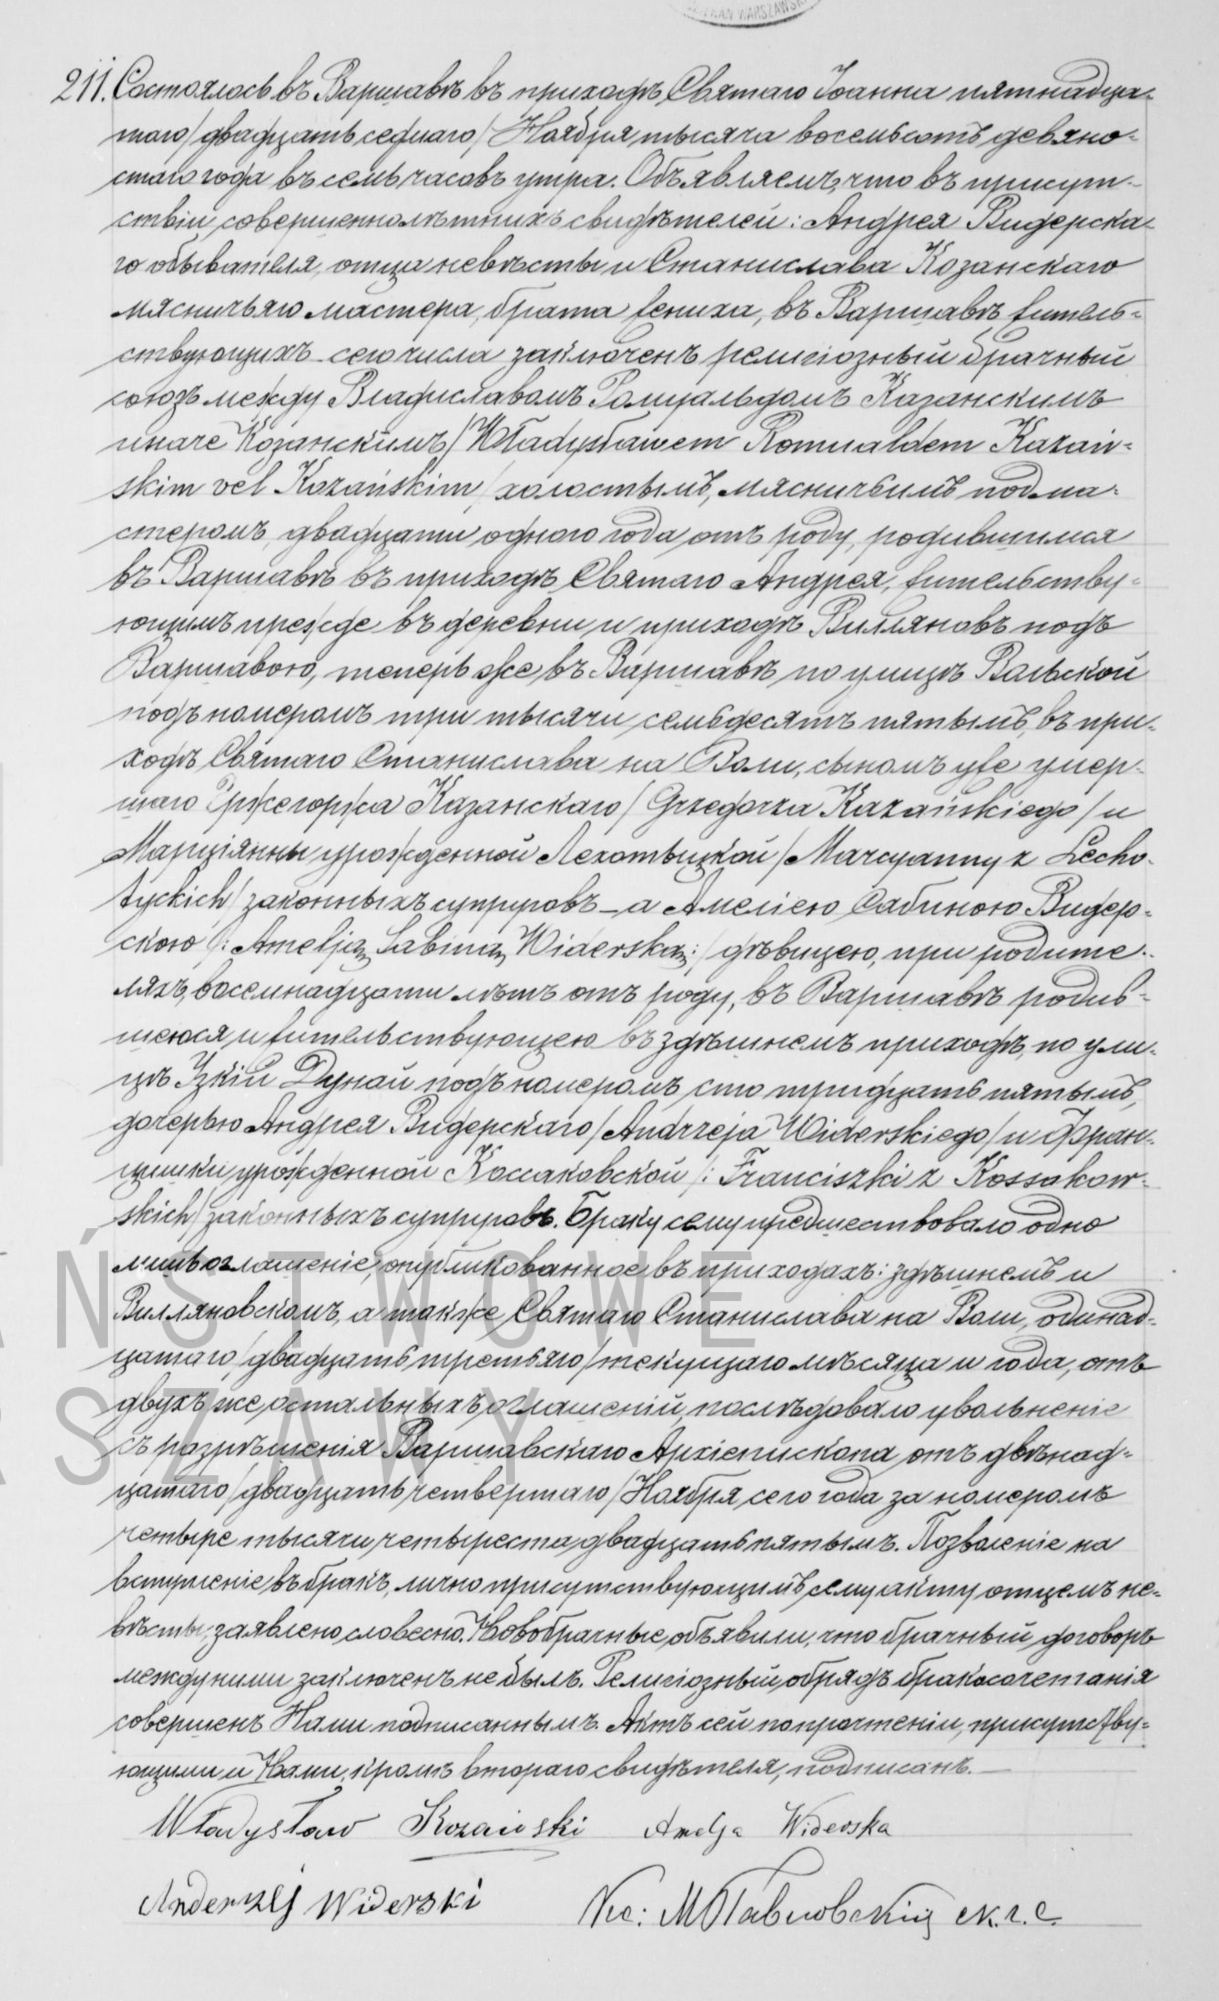 211. Состоялось въ Варшавѣ въ приходѣ Святаго Іоанна пятнадца-
таго /двадцать седмаго/ Ноября тысяча восемьсотъ девяно-
стаго года въ семь часовъ утра. Объявляемъ, что въ присут-
ствіи совершеннолѣтнихъ свидѣтелей: Андрея Видерска-
го обывателя, отца невѣсты и Станислава Козанскаго
мясничьяго мастера, брата жениха, въ Варшавѣ житель-
ствующихъ сего числа заключенъ религіозный брачный
союзъ между Владиславомъ Ромуальдомъ Казанскимъ
иначе Козанскимъ /Władysławem Romualdem Kazań-
skim vel Kozańskim/ холостымъ, мясничьимъ подма-
стеромъ, двадцати одного года отъ роду, родившимся
въ Варшавѣ въ приходѣ Святаго Андрея, жительству-
ющимъ прежде въ деревни и приходѣ Вилляновъ подъ
Варшавою, теперь же въ Варшавѣ по улицѣ Вольской
подъ номеромъ три тысячи семьдесятъ пятымъ, въ при-
ходѣ Святаго Станислава на Воли, сыномъ уже умер-
шаго Гржегоржа Казанскаго /Grzegorza Kazańskiego/ и
Марціянны урожденной Лехотыцкой /Marcyanny z Lecho-
tyckich/ законныхъ супруговъ – а Амеліею Сабиною Видер-
скою /: Amelją Sabiną Widerską :/ дѣвицею, при родите-
ляхъ, восемнадцати лѣтъ отъ роду, въ Варшавѣ родив-
шеюся и жительствующею въ здѣшнемъ приходѣ, по ули-
цѣ Узкій Дунай подъ номеромъ сто тридцать пятымъ,
дочерью Андрея Видерскаго /Andrzeja Widerskiego/ и Фран-
цишки урожденной Коссаковской /: Franciszki z Kossakow-
skich/ законныхъ супруговъ. Браку сему предшествовало одно
лишь оглашеніе, опубликованное въ приходахъ: здѣшнемъ и
Вилляновскомъ, а также Святаго Станислава на Воли, одинад-
цатаго /двадцать третьяго/ текущаго мѣсяца и года, отъ
двухъ же остальныхъ оглашеній, послѣдовало увольненіе
съ разрѣшенія Варшавскаго Архіепископа отъ двѣнад-
цатаго /двадцать четвертаго/ Ноября сего года за номеромъ
четыре тысячи четыреста двадцать пятымъ. Позволеніе на
вступленіе въ бракъ, лично присутствующимъ сему акту отцемъ не-
вѣсты, заявлено словесно. Новобрачные объявили, что брачный договоръ
между ними заключенъ не былъ. Религіозный обрядъ бракосочетанія
совершенъ Нами подписаннымъ. Актъ сей по прочтеніи, присутству-
ющими и Нами, кромѣ втораго свидѣтеля, подписанъ.—
Władysław Kozański Amelja Widerska
Anderzej Widerski
PAŃSTWOWE
WARSZAWY